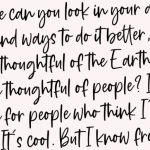 e can you look in your d
nd ways to do it better,
thoughtful of the Earth
thoughtful of people? I
for people who think I
It's cool. But I know fro